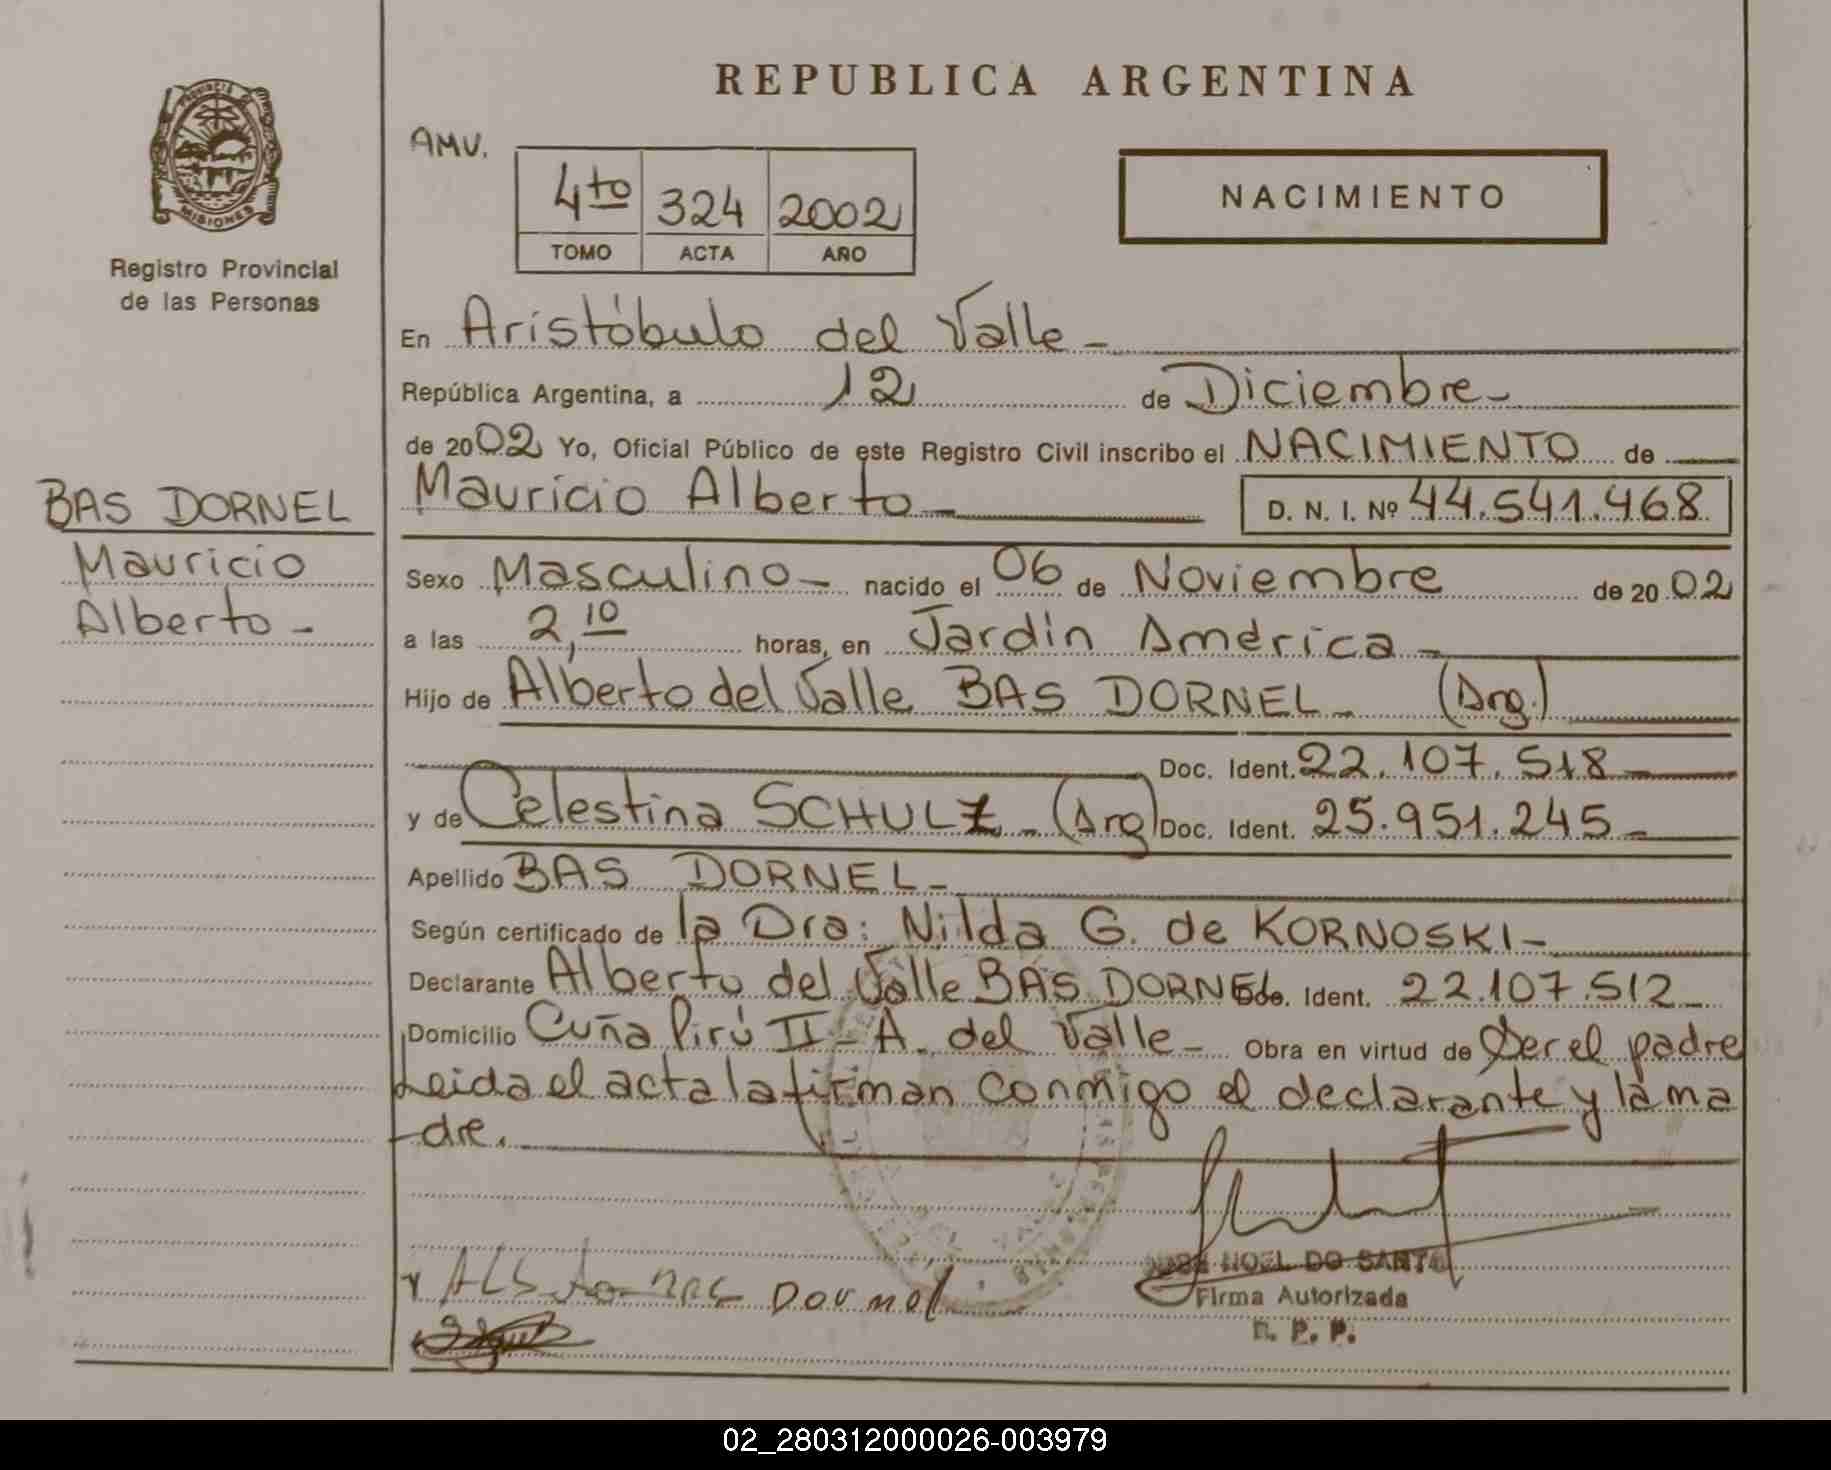 PROVINCIA DE
MISIONES
Registro Provincial
de las Personas
BAS DORNEL
Mauricio
Alberto -
REPUBLICA ARGENTINA
AMV.
4to 324 2002
TOMO ACTA AÑO
NACIMIENTO
En Aristóbulo del Valle -
República Argentina, a 12 de Diciembre -
de 2002 Yo, Oficial Público de este Registro Civil inscribo el NACIMIENTO de
Mauricio Alberto - D. N. I. Nº 44.541.468
Sexo Masculino - nacido el 06 de Noviembre de 2002
a las 2,10 horas, en Jardín América -
Hijo de Alberto del Valle BAS DORNEL - (Arg.)
Doc. Ident. 22.107.518 -
y de Celestina SCHULZ - (Arg) Doc. Ident. 25.951.245 -
Apellido BAS DORNEL -
Según certificado de la Dra: Nilda G. de KORNOSKI -
Declarante Alberto del Valle BAS DORNEL Doc. Ident. 22.107.512 -
Domicilio Cuña Pirú II - A. del Valle - Obra en virtud de Ser el padre
Leida el acta la firman conmigo el declarante y la ma
dre.
NOEL DO SANTO
Firma Autorizada
R. P. P.
Dornel
02_280312000026-003979